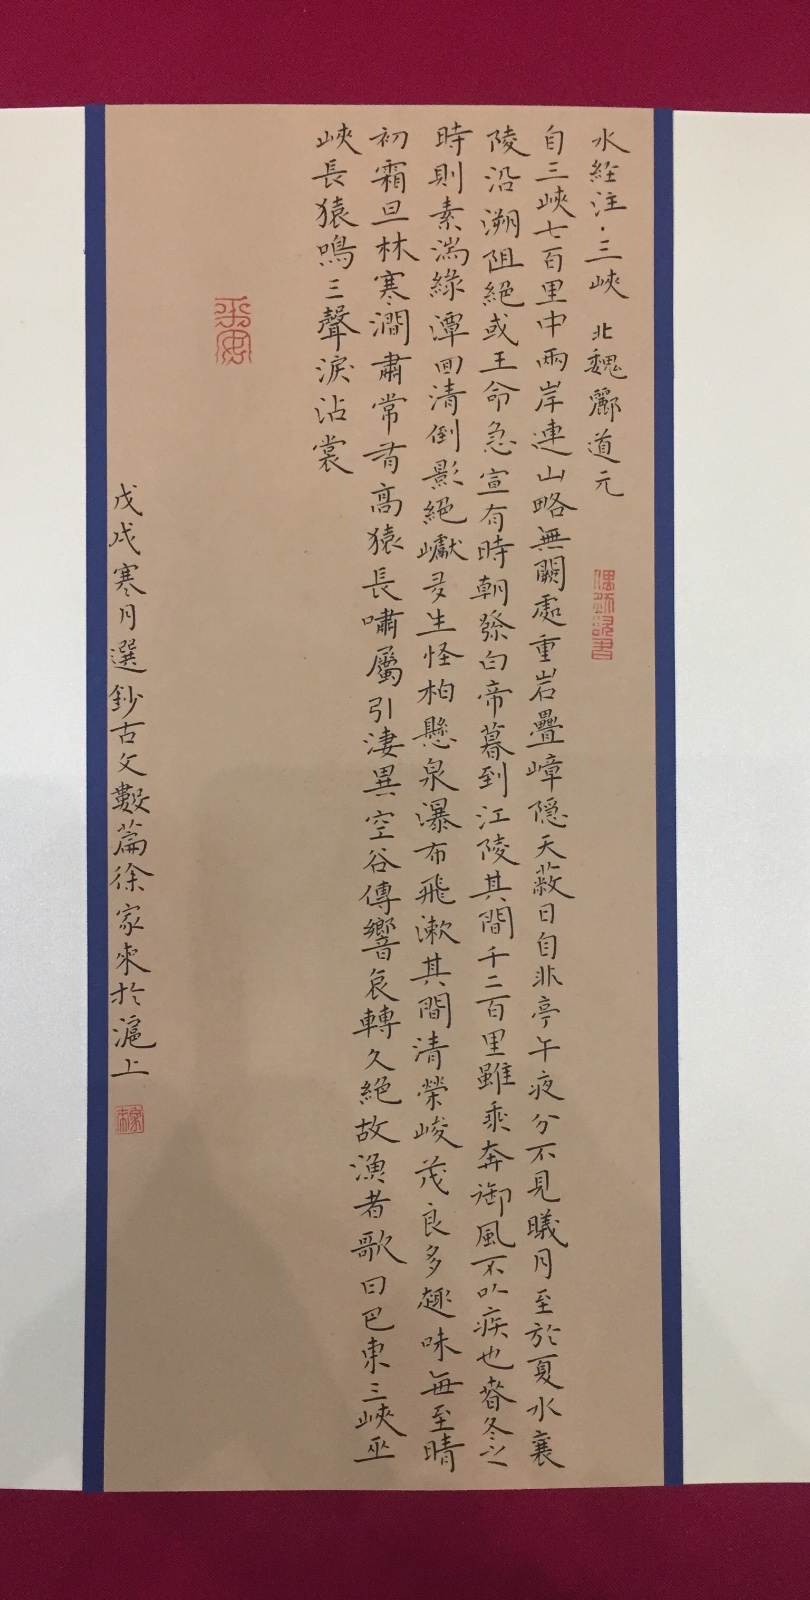 水經注·三峽 北魏酈道元
自三峽七百里中兩岸連山略無闕處重岩疊嶂隱天蔽日自非亭午夜分不見曦月至於夏水襄
陵沿溯阻絕或王命急宣有時朝發白帝暮到江陵其間千二百里雖乘奔御風不以疾也春冬之
時則素湍綠潭回清倒影絕巘多生怪柏懸泉瀑布飛漱其間清榮峻茂良多趣味每至晴
初霜旦林寒澗肅常有高猿長嘯屬引淒異空谷傳響哀轉久絕故漁者歌曰巴東三峽巫
峽長猿鳴三聲淚沾裳
戊戌寒月選鈔古文數篇徐家東於滬上